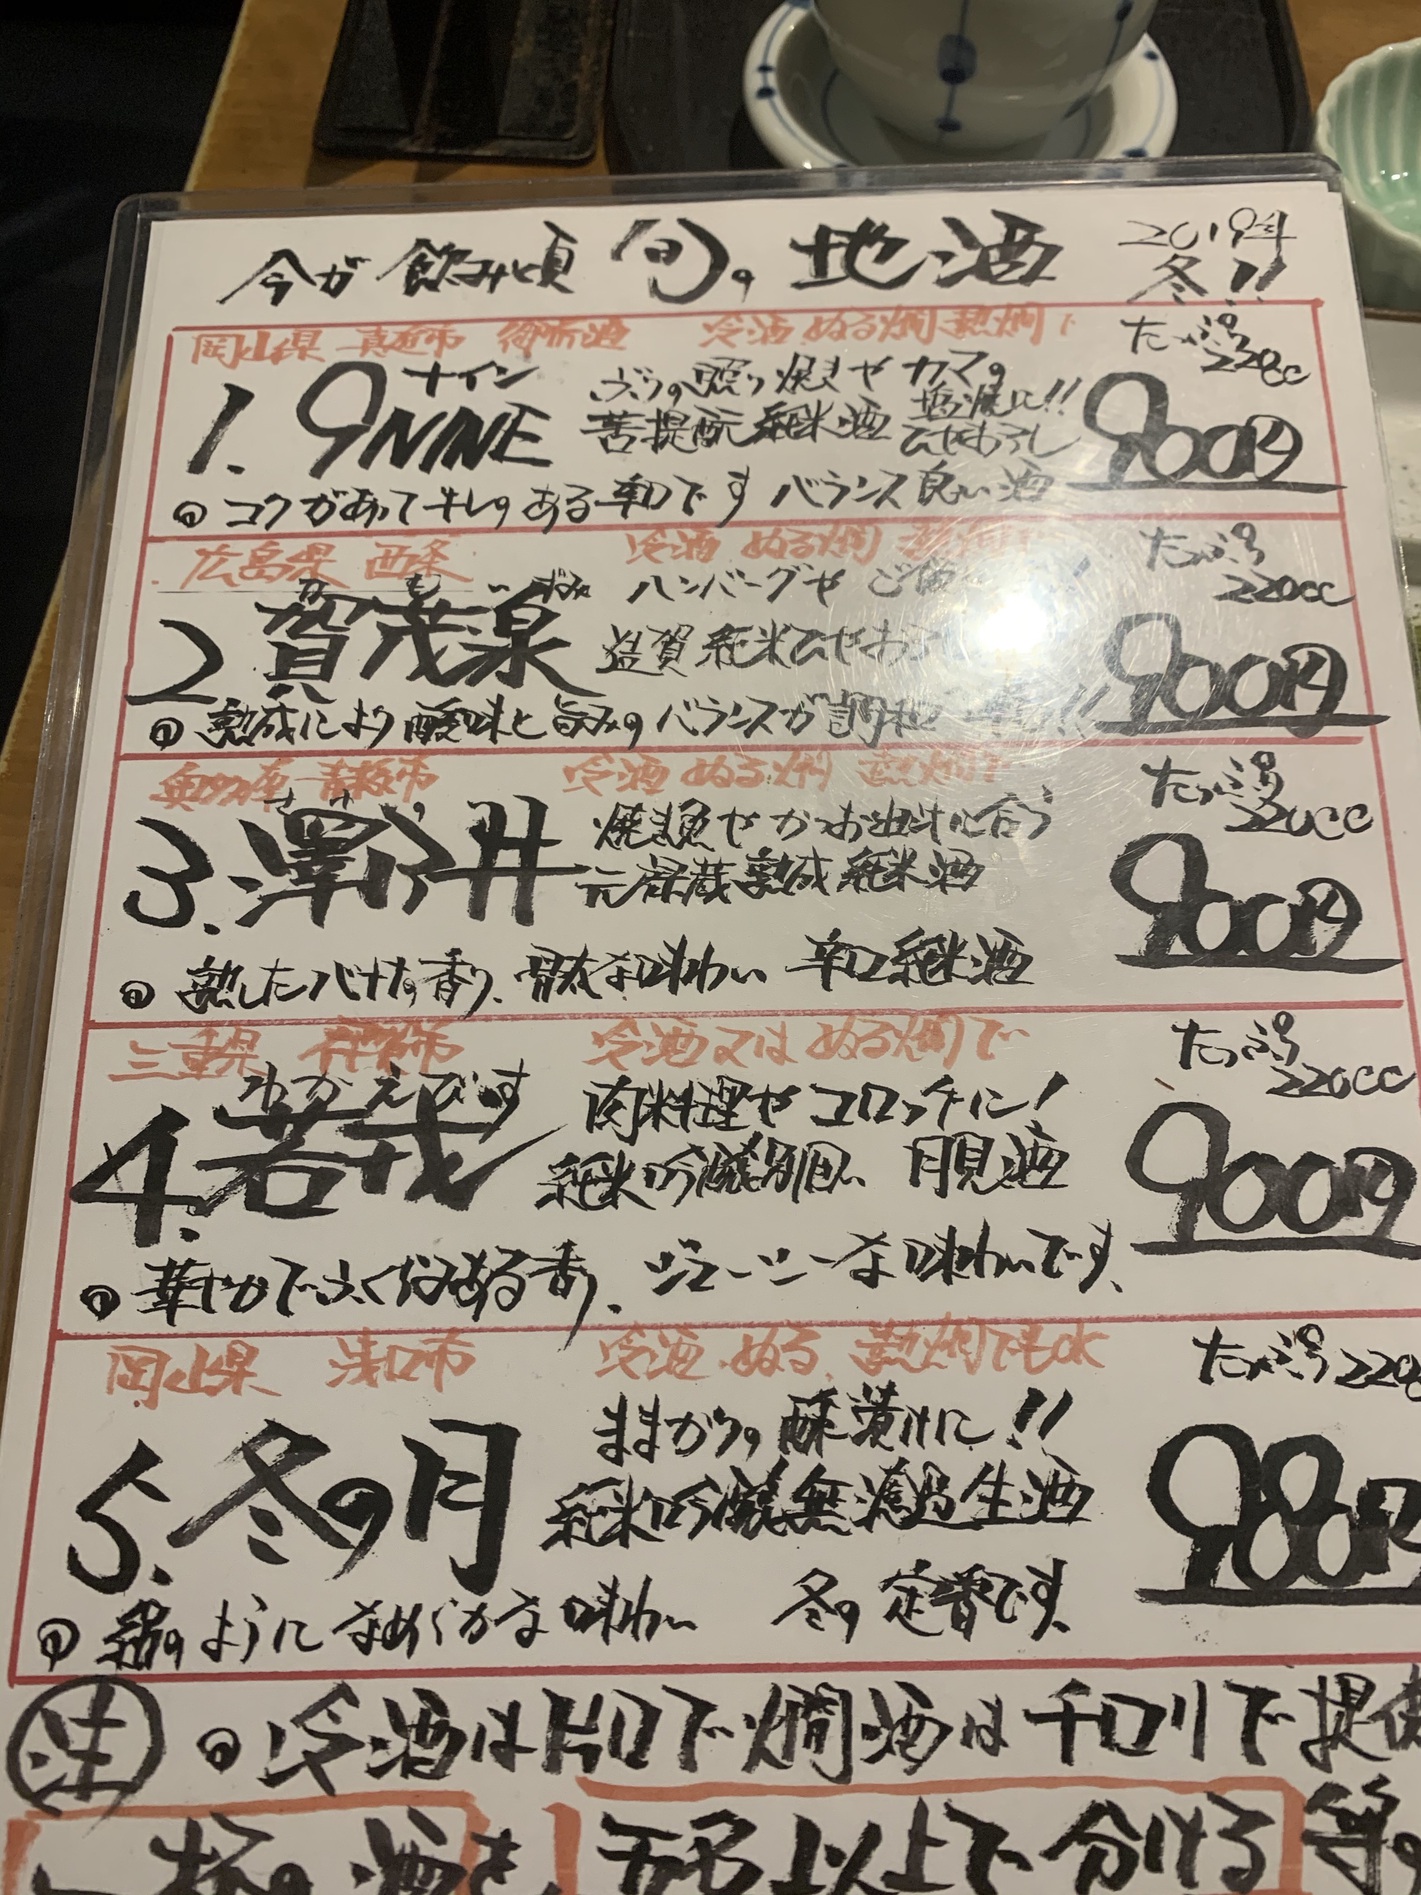 今が飲み頃 旬の地酒 2019年 冬!!
岡山県 真庭市 御前酒 冷酒 ぬる燗 熱燗で
たっぷり 220cc
1. 9NINE ナイン
ぶりの照り焼きや カマの塩焼に!!
菩提酛 純米酒 ひやおろし
900円
コクがあってキレのある辛口です バランス良い酒
広島県 西条 冷酒 ぬる燗
たっぷり 220cc
2 賀茂泉 かもいずみ
ハンバーグや
造賀 純米ひやおろし
900円
熟成により酸味と旨みのバランスが調和
奥多摩 青梅市 冷酒 ぬる燗 熱燗で
たっぷり 220cc
3. 澤乃井 さわ
焼魚や かつお油汁に合う
元禄蔵熟成 純米酒
900円
熟したバナナの香り、骨太な味わい 辛口純米酒
三重県 冷酒又は ぬる燗で
たっぷり 220cc
4. 若戎 わかえびす
肉料理や コロッケに!
純米吟醸別囲い 月見酒
900円
華やかでふくらみある香り、ジューシーな味わいです、
岡山県 浅口市 冷酒 ぬる、熱燗でもOK
たっぷり 220c
5. 冬の月
ままかりの酢漬けに!!
純米吟醸無濾過生酒
900円
絹のようになめらかな味わい 冬の定番です、
注 冷酒は片口で 燗酒はチロリで提供
酒を 五名以上で 分ける 等の